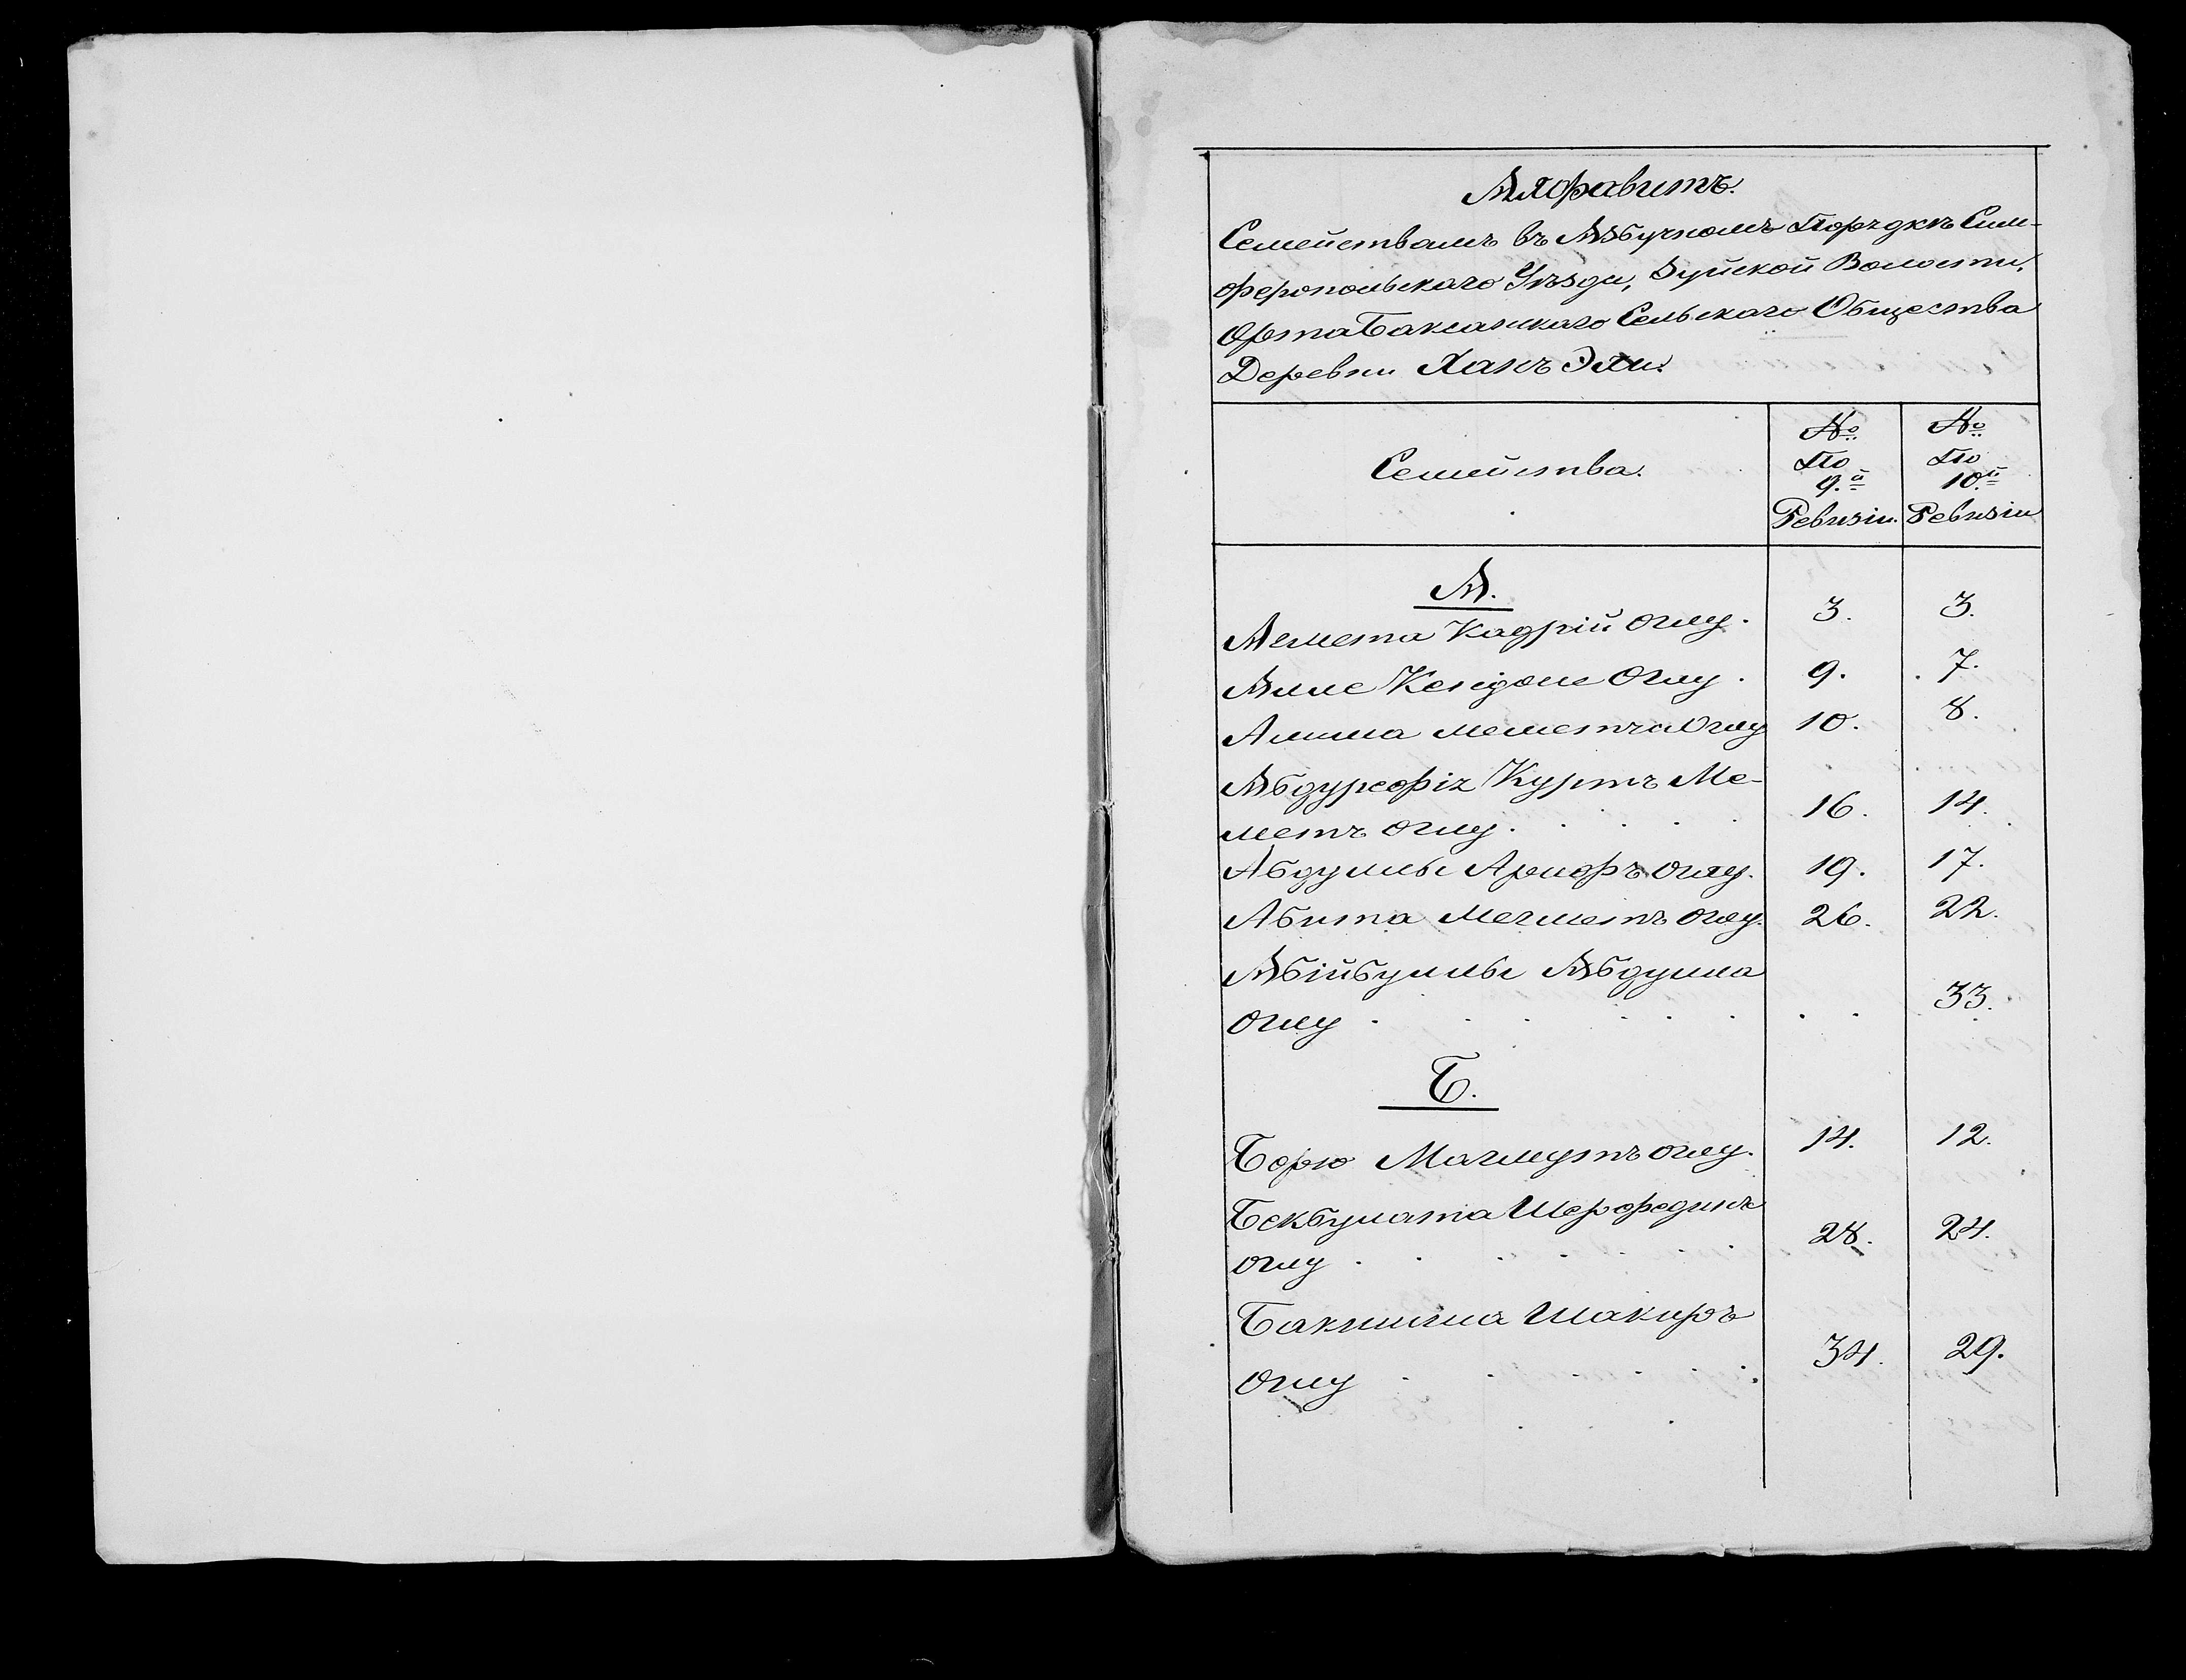 Алфавитъ.
Семействамъ въ Азбучномъ Порядкѣ Сим-
феропольскаго Уѣзда, Зуйской Волости,
Орта Баксанскаго Сельскаго Общества
Деревни Ханъ Эли.
Семейства.
№ По 9.й Ревизіи.
№ По 10.й Ревизіи
А.
Аемета Кадрій Оглу. 3. 3.
Оглу. 9. 7.
Алима Меметча Оглу 10. 8.
Куртъ Ме-
метъ Оглу. 16. 14.
Абдуллы Арифъ Оглу. 19. 17.
Абита Мегметъ Оглу. 26. 22.
Абійбуллы Абдулла
Оглу 33.
Б.
Борю Магмутъ Оглу. 14. 12.
Бекбулата Шерфединъ
Оглу 28. 24.
Шакиръ
Оглу 34. 29.